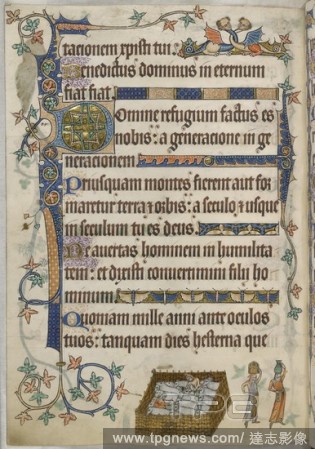 tacionem xpisti tui.
Benedictus dominus in eternum
fiat fiat.
Domine refugium factus es
nobis: a generacione in ge
neracionem
Priusquam montes fierent aut for
maretur terra et orbis: a seculo et usque
in seculum tu es deus.
Ne avertas hominem in humilita
tem: et dixisti convertimini filij ho
minum.
Quoniam mille anni ante oculos
tuos: tanquam dies hesterna que
TPG
www.tpgnews.com/ 達志影像